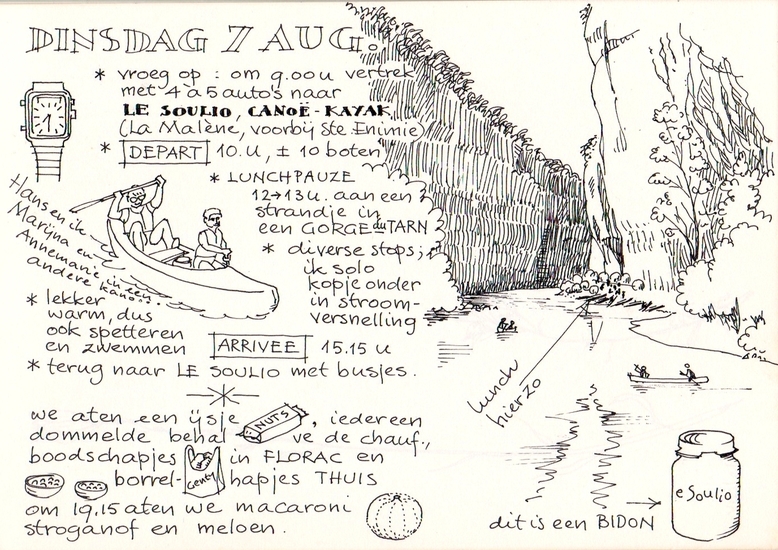 DINSDAG 7 AUG.
* vroeg op : om 9.00 u vertrek
met 4 à 5 auto's naar
LE SOULIO, CANOË-KAYAK
(La Malène, voorbij Ste Enimie)
* DEPART 10.U, ± 10 boten
* LUNCHPAUZE
12→13 u. aan een
strandje in
een GORGE du TARN
Hans en ik
Marijna en
Annemarie in een
andere kano.
* diverse stops;
ik solo
kopje onder
in stroom-
versnelling
* lekker
warm, dus
ook spetteren
en zwemmen
ARRIVEE 15.15 u
* terug naar LE SOULIO met busjes.
lunch
hierzo
we aten een ijsje NUTS, iedereen
dommelde behal ve de chauf.,
boodschapjes Genty in FLORAC en
borrel- hapjes THUIS
om 19.15 aten we macaroni
stroganof en meloen.
e Soulio
dit is een BIDON